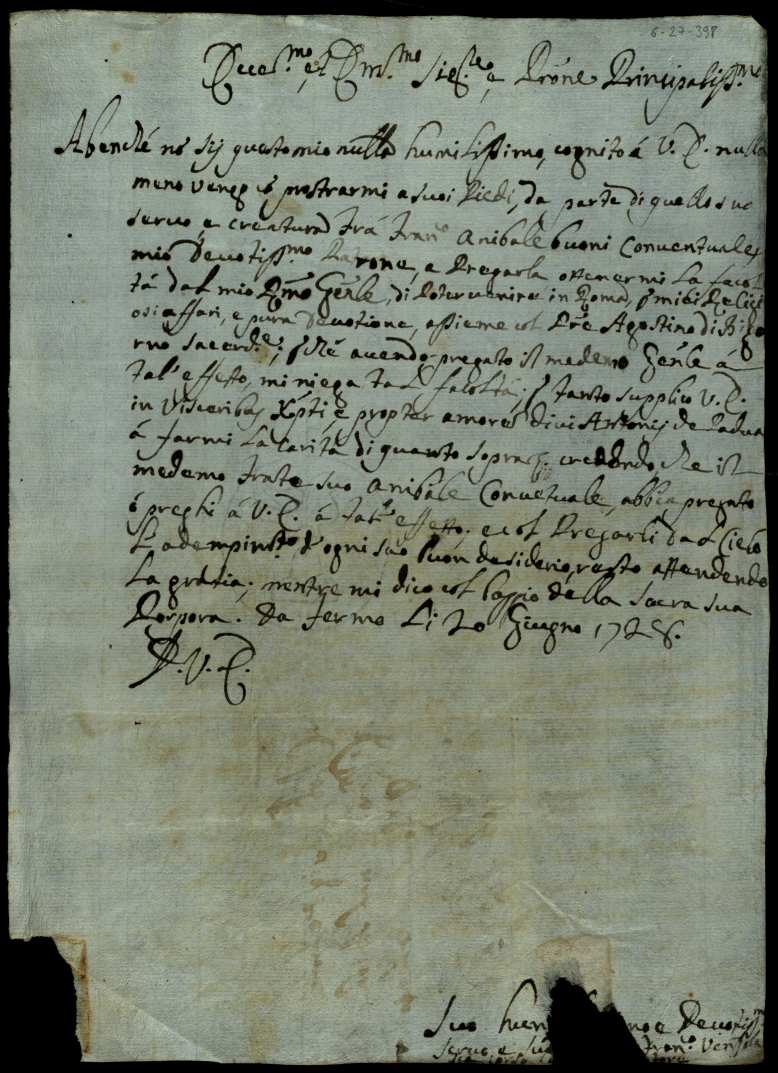 6-27-398
Ecce.mo, et Em.mo Sig.re, e Prône Principaliss.mo
Abenché nō sij questo mio nulla humilissimo, cognito á V. E. nulla
meno vengo á prostrarmi a suoi Piedi, da parte di quello suo
servo, e creatura frá Fran.o Anibale buoni Conventuale,
mio Devotiss.mo Patrone, e Pregarla ottenermi La facol
tá dal mio R̄mo Gēn̄le, di Poter venire in Roma, ꝑ miei Religi
osi affari, e pura devotione, assieme col Prē Agostino di
rno Sacerd.e; ꝑché avendo pregato il medemo Gēn̄le á
tal' effetto, mi niega tal facoltá; ꝑ tanto supplico V. E.
in Visceribus Xp̄ti, e propter amorē divi Antonij de Padua
á farmi La Caritá di quanto sopra; credendo, che il
medemo frate suo Anibale Conventuale, abbia pregato
ó preghi á V. E. á tal' effetto. e col Pregarli dal Cielo
L'adempim.to d'ogni suo buon desiderio, resto attendendo
La gratia; mentre mi dico col baggio della Sacra sua
Porpora. Da fermo Li 20 Giugno 1728.
D. V. E.
Suo hum Devotiss.mo
servo, e Fran.o